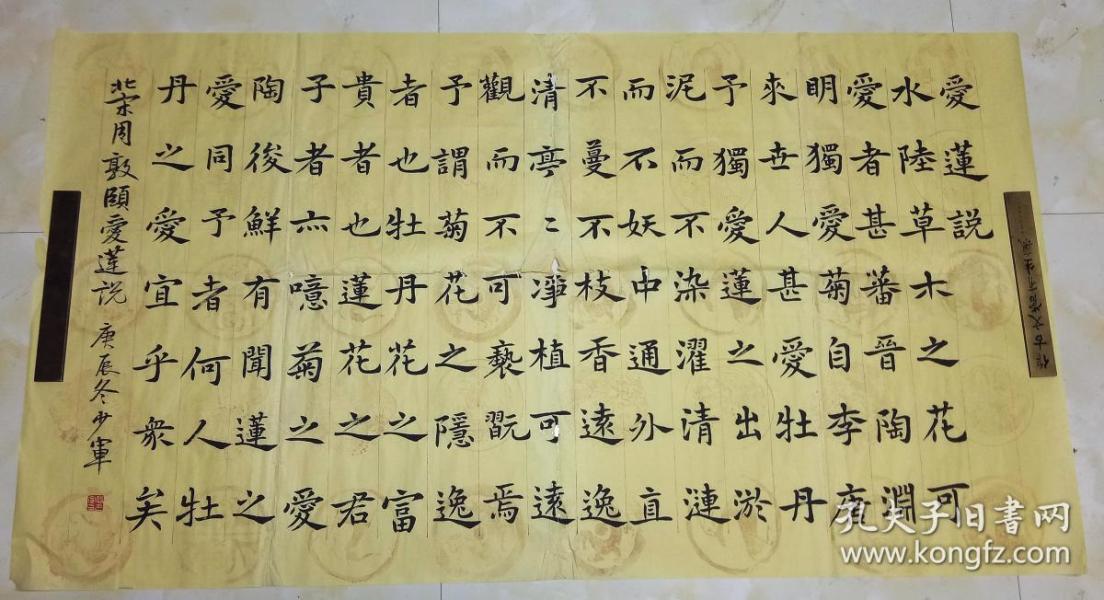 愛蓮說
水陸草木之花可
愛者甚蕃晉陶淵
明獨愛菊自李唐
來世人甚愛牡丹
予獨愛蓮之出淤
泥而不染濯清漣
而不妖中通外直
不蔓不枝香遠逸
清亭〻凈植可遠
觀而不可褻翫焉
予謂菊花之隱逸
者也牡丹花之富
貴者也蓮花之君
子者六噫菊之愛
陶後鮮有聞蓮之
愛同予者何人牡
丹之愛宜乎眾矣
北宋周敦頤愛蓮説 庚辰冬少軍
孔夫子旧書网
www.kongfz.com